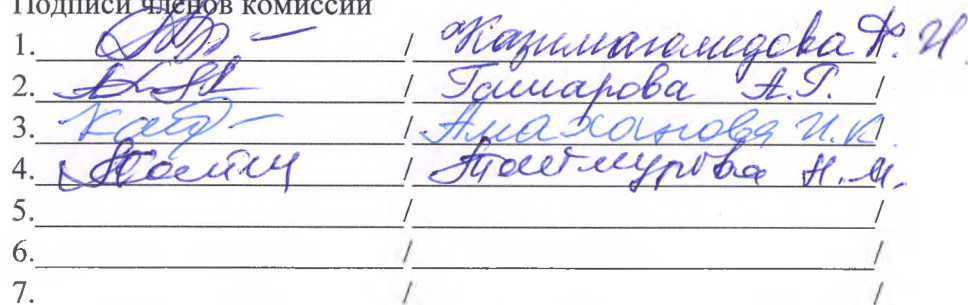 Подписи членов комиссии
1. / Казимагомедова Р. И.
2. / Гашарова А.Г. /
3. / Амаханова И.К. /
4. / Таймурова Н.М.
5. / /
6. / /
7. / /